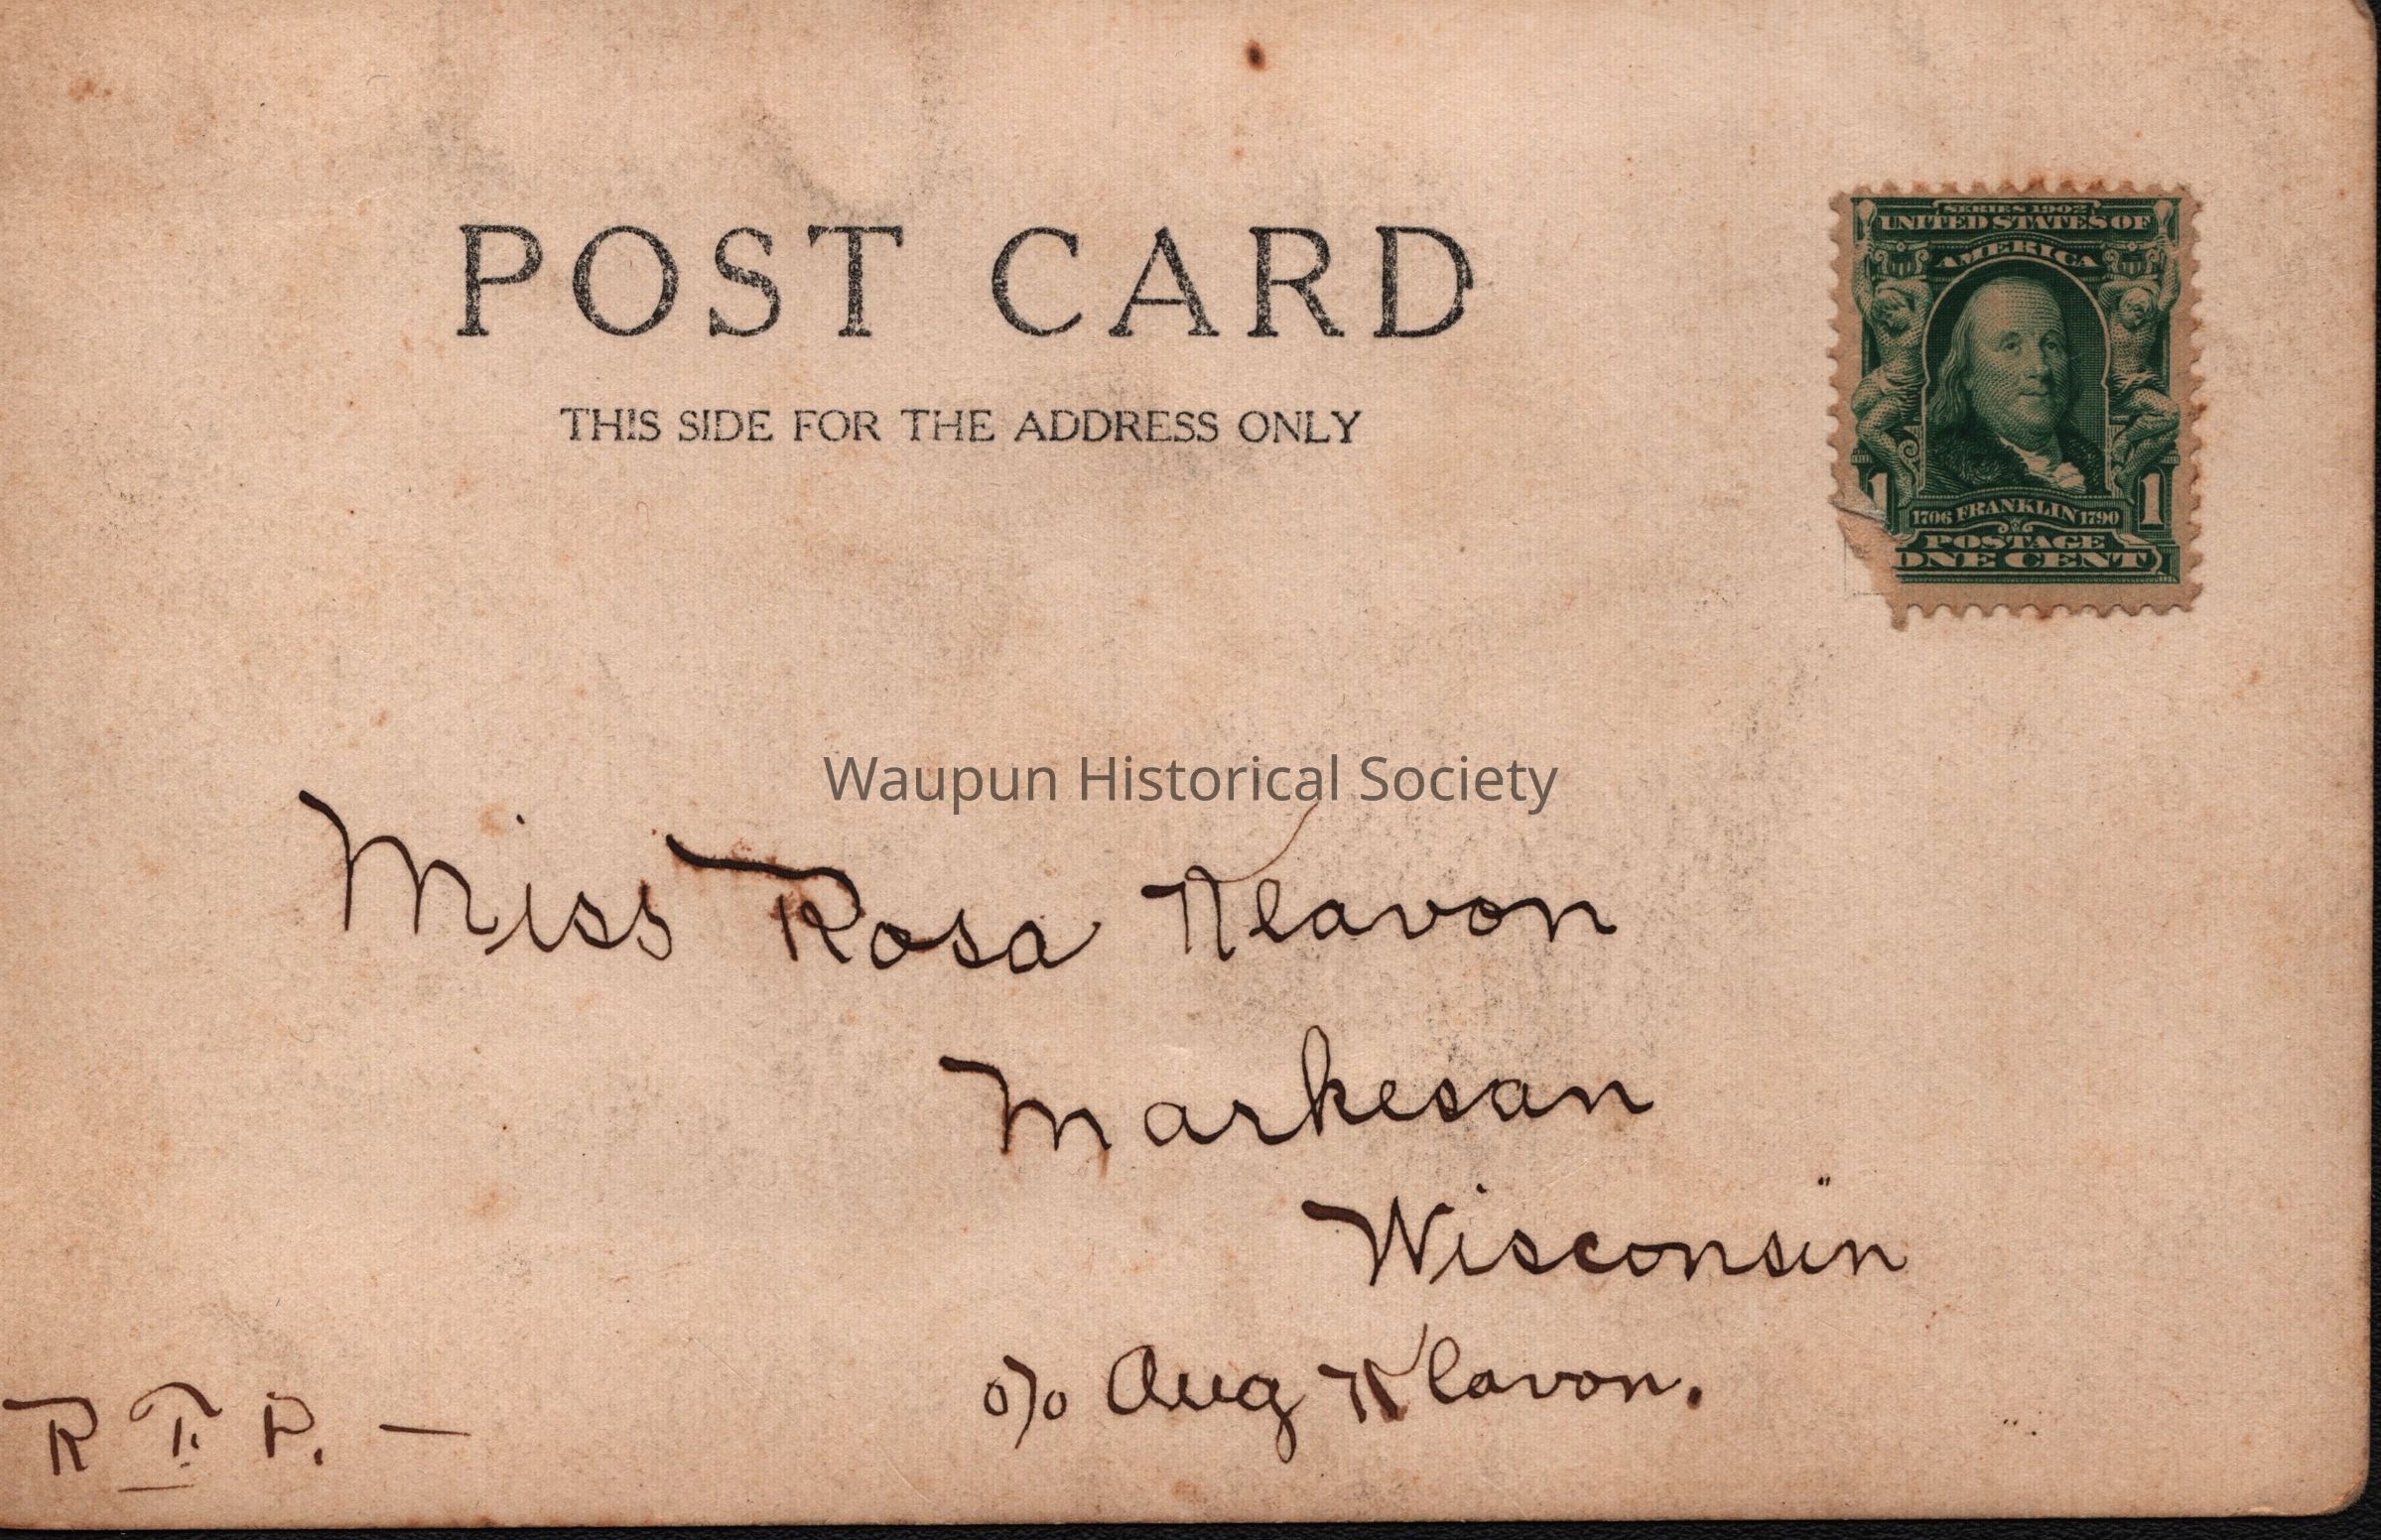 SERIES 1902
UNITED STATES OF
AMERICA
POST CARD
THIS SIDE FOR THE ADDRESS ONLY
1 1706 FRANKLIN 1790 1
POSTAGE
ONE CENT
Waupun Historical Society
Miss Rosa Klavon
Markesan
Wisconsin
c/o Aug Klavon.
R. F. D. —